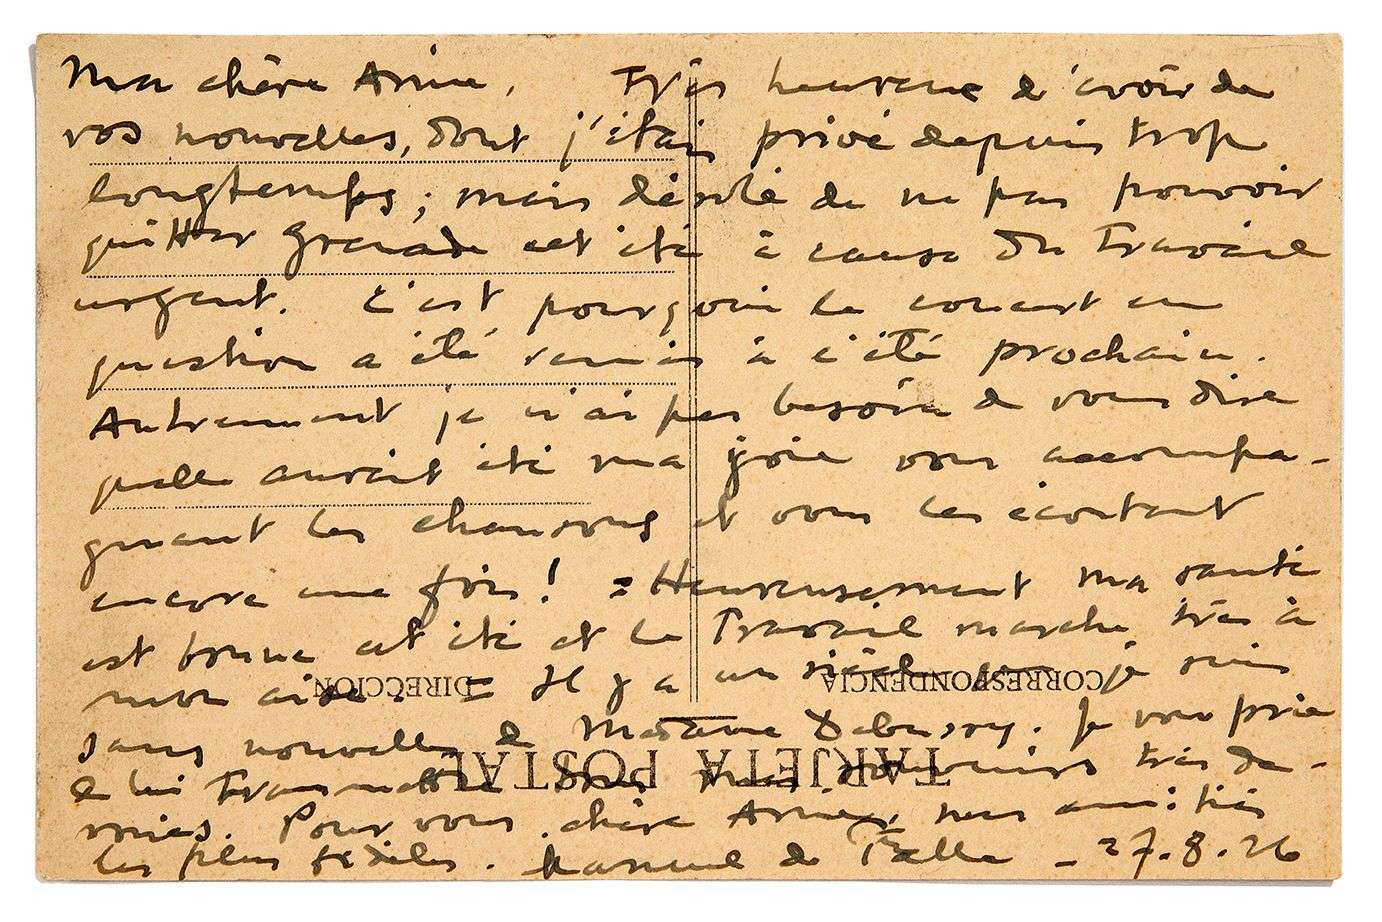 Ma chère Amie, Très heureux d'avoir de
vos nouvelles, dont j'étais privé depuis trop
longtemps ; mais désolé de ne pas pouvoir
quitter Grenade cet été à cause du travail
urgent. C'est pourquoi le concert en
question a été remis à l'été prochain.
Autrement je n'ai pas besoin de vous dire
quelle aurait été ma joie vous accompa-
gnant les chansons et vous les écoutant
encore une fois ! = Heureusement ma santé
est bonne cet été et le Travail marche très à
mon aise. = Il y a un siècle que je suis
DIRECCIÓN
CORRESPONDENCIA
sans nouvelles de Madame Debussy. Je vous prie
TARJETA POSTAL
de lui transmettre mes souvenirs très dé-
voués. Pour vous, chère Amie, mes amitiés
les plus fidèles. Manuel de Falla – 27.8.26